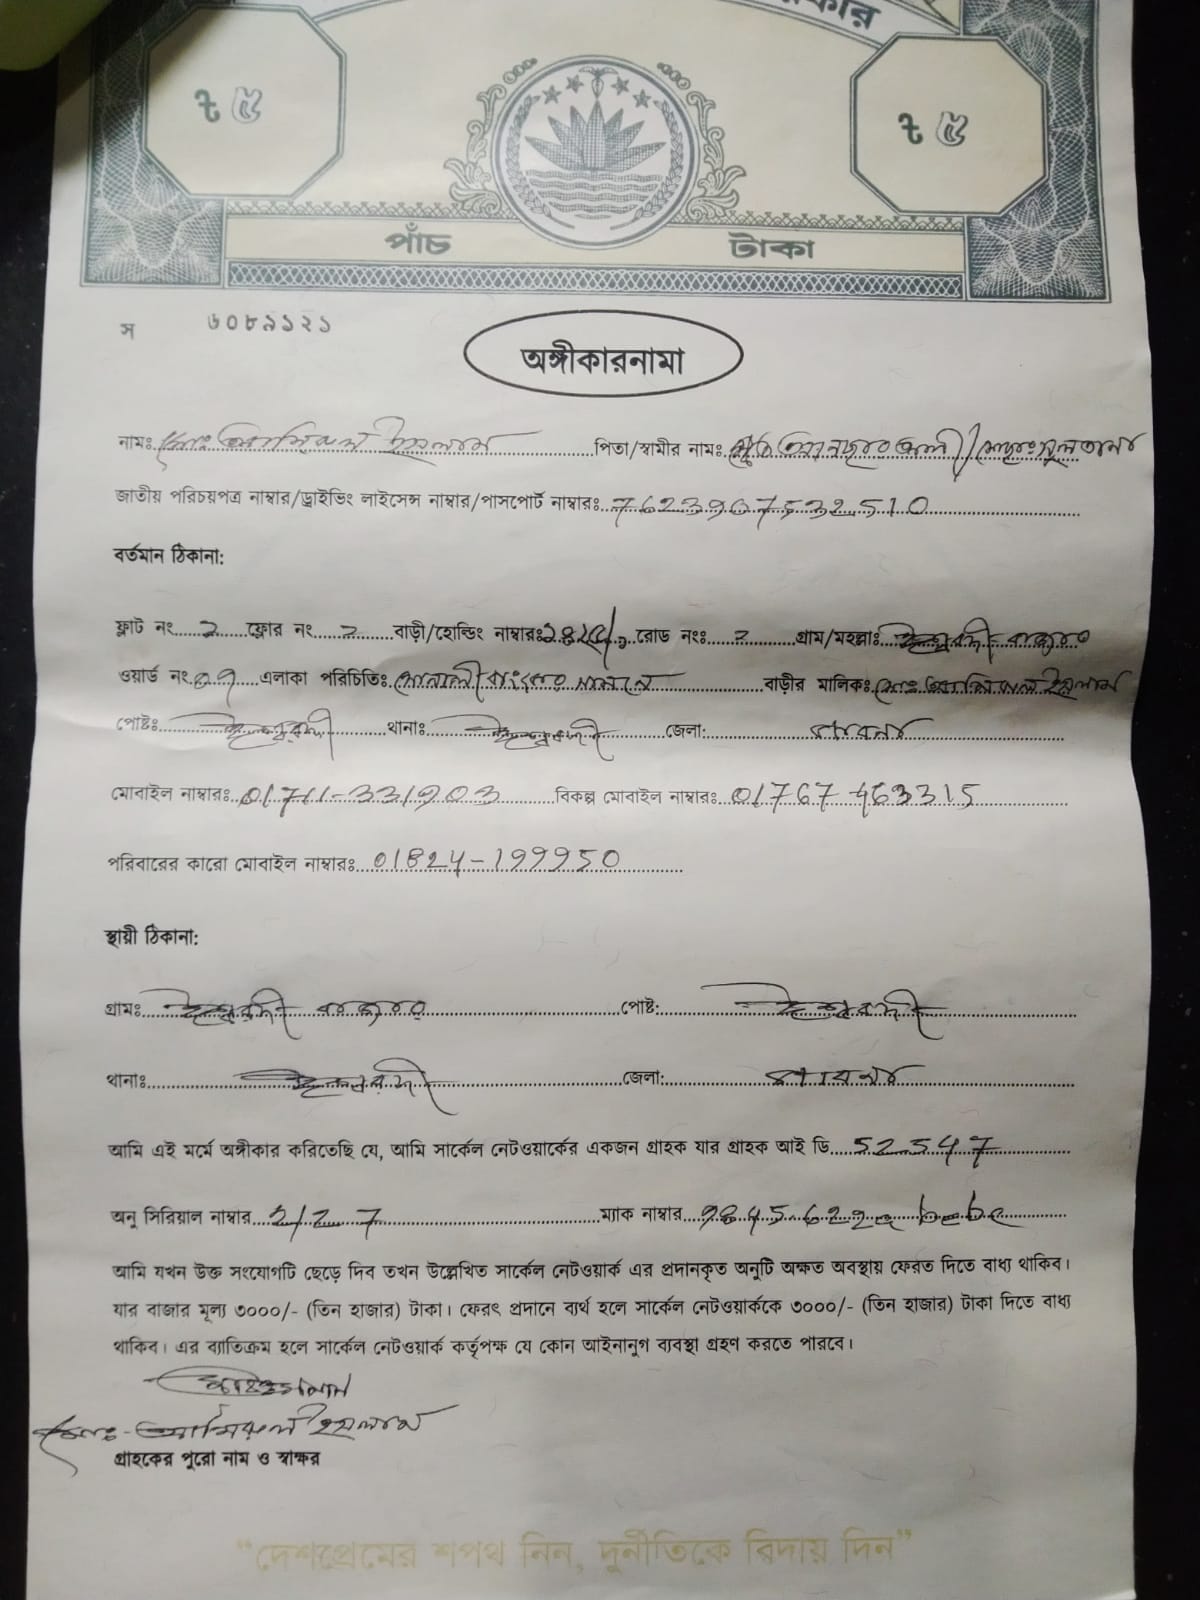 ৳ ৫ ৳ ৫
পাঁচ টাকা
স ৬০৮৯১২১
অঙ্গীকারনামা
নামঃ মোঃ আমিরুল ইসলাম পিতা/স্বামীর নামঃ
জাতীয় পরিচয়পত্র নাম্বার/ড্রাইভিং লাইসেন্স নাম্বার/পাসপোর্ট নাম্বারঃ 7623907532510
বর্তমান ঠিকানা:
ফ্লাট নং 2 ফ্লোর নং 2 বাড়ী/হোল্ডিং নাম্বারঃ রোড নংঃ 2 গ্রাম/মহল্লাঃ ঈশ্বরদী বাজার
ওয়ার্ড নং এলাকা পরিচিতিঃ সোনালী ব্যাংকের সামনে বাড়ীর মালিকঃ মোঃ আমিরুল ইসলাম
পোষ্টঃ ঈশ্বরদী থানাঃ ঈশ্বরদী জেলা: পাবনা
মোবাইল নাম্বারঃ 01711-331903 বিকল্প মোবাইল নাম্বারঃ 01767 463315
পরিবারের কারো মোবাইল নাম্বারঃ 01824-199950
স্থায়ী ঠিকানা:
গ্রামঃ ঈশ্বরদী বাজার পোষ্ট: ঈশ্বরদী
থানাঃ ঈশ্বরদী জেলা: পাবনা
আমি এই মর্মে অঙ্গীকার করিতেছি যে, আমি সার্কেল নেটওয়ার্কের একজন গ্রাহক যার গ্রাহক আই ডি 52547
অনু সিরিয়াল নাম্বার 2/2 7 ম্যাক নাম্বার
আমি যখন উক্ত সংযোগটি ছেড়ে দিব তখন উল্লেখিত সার্কেল নেটওয়ার্ক এর প্রদানকৃত অনুটি অক্ষত অবস্থায় ফেরত দিতে বাধ্য থাকিব।
যার বাজার মূল্য ৩০০০/- (তিন হাজার) টাকা। ফেরৎ প্রদানে ব্যর্থ হলে সার্কেল নেটওয়ার্ককে ৩০০০/- (তিন হাজার) টাকা দিতে বাধ্য
থাকিব। এর ব্যাতিক্রম হলে সার্কেল নেটওয়ার্ক কর্তৃপক্ষ যে কোন আইনানুগ ব্যবস্থা গ্রহণ করতে পারবে।
মোঃ- আমিরুল ইসলাম
গ্রাহকের পুরো নাম ও স্বাক্ষর
“দেশপ্রেমের শপথ নিন, দুর্নীতিকে বিদায় দিন”